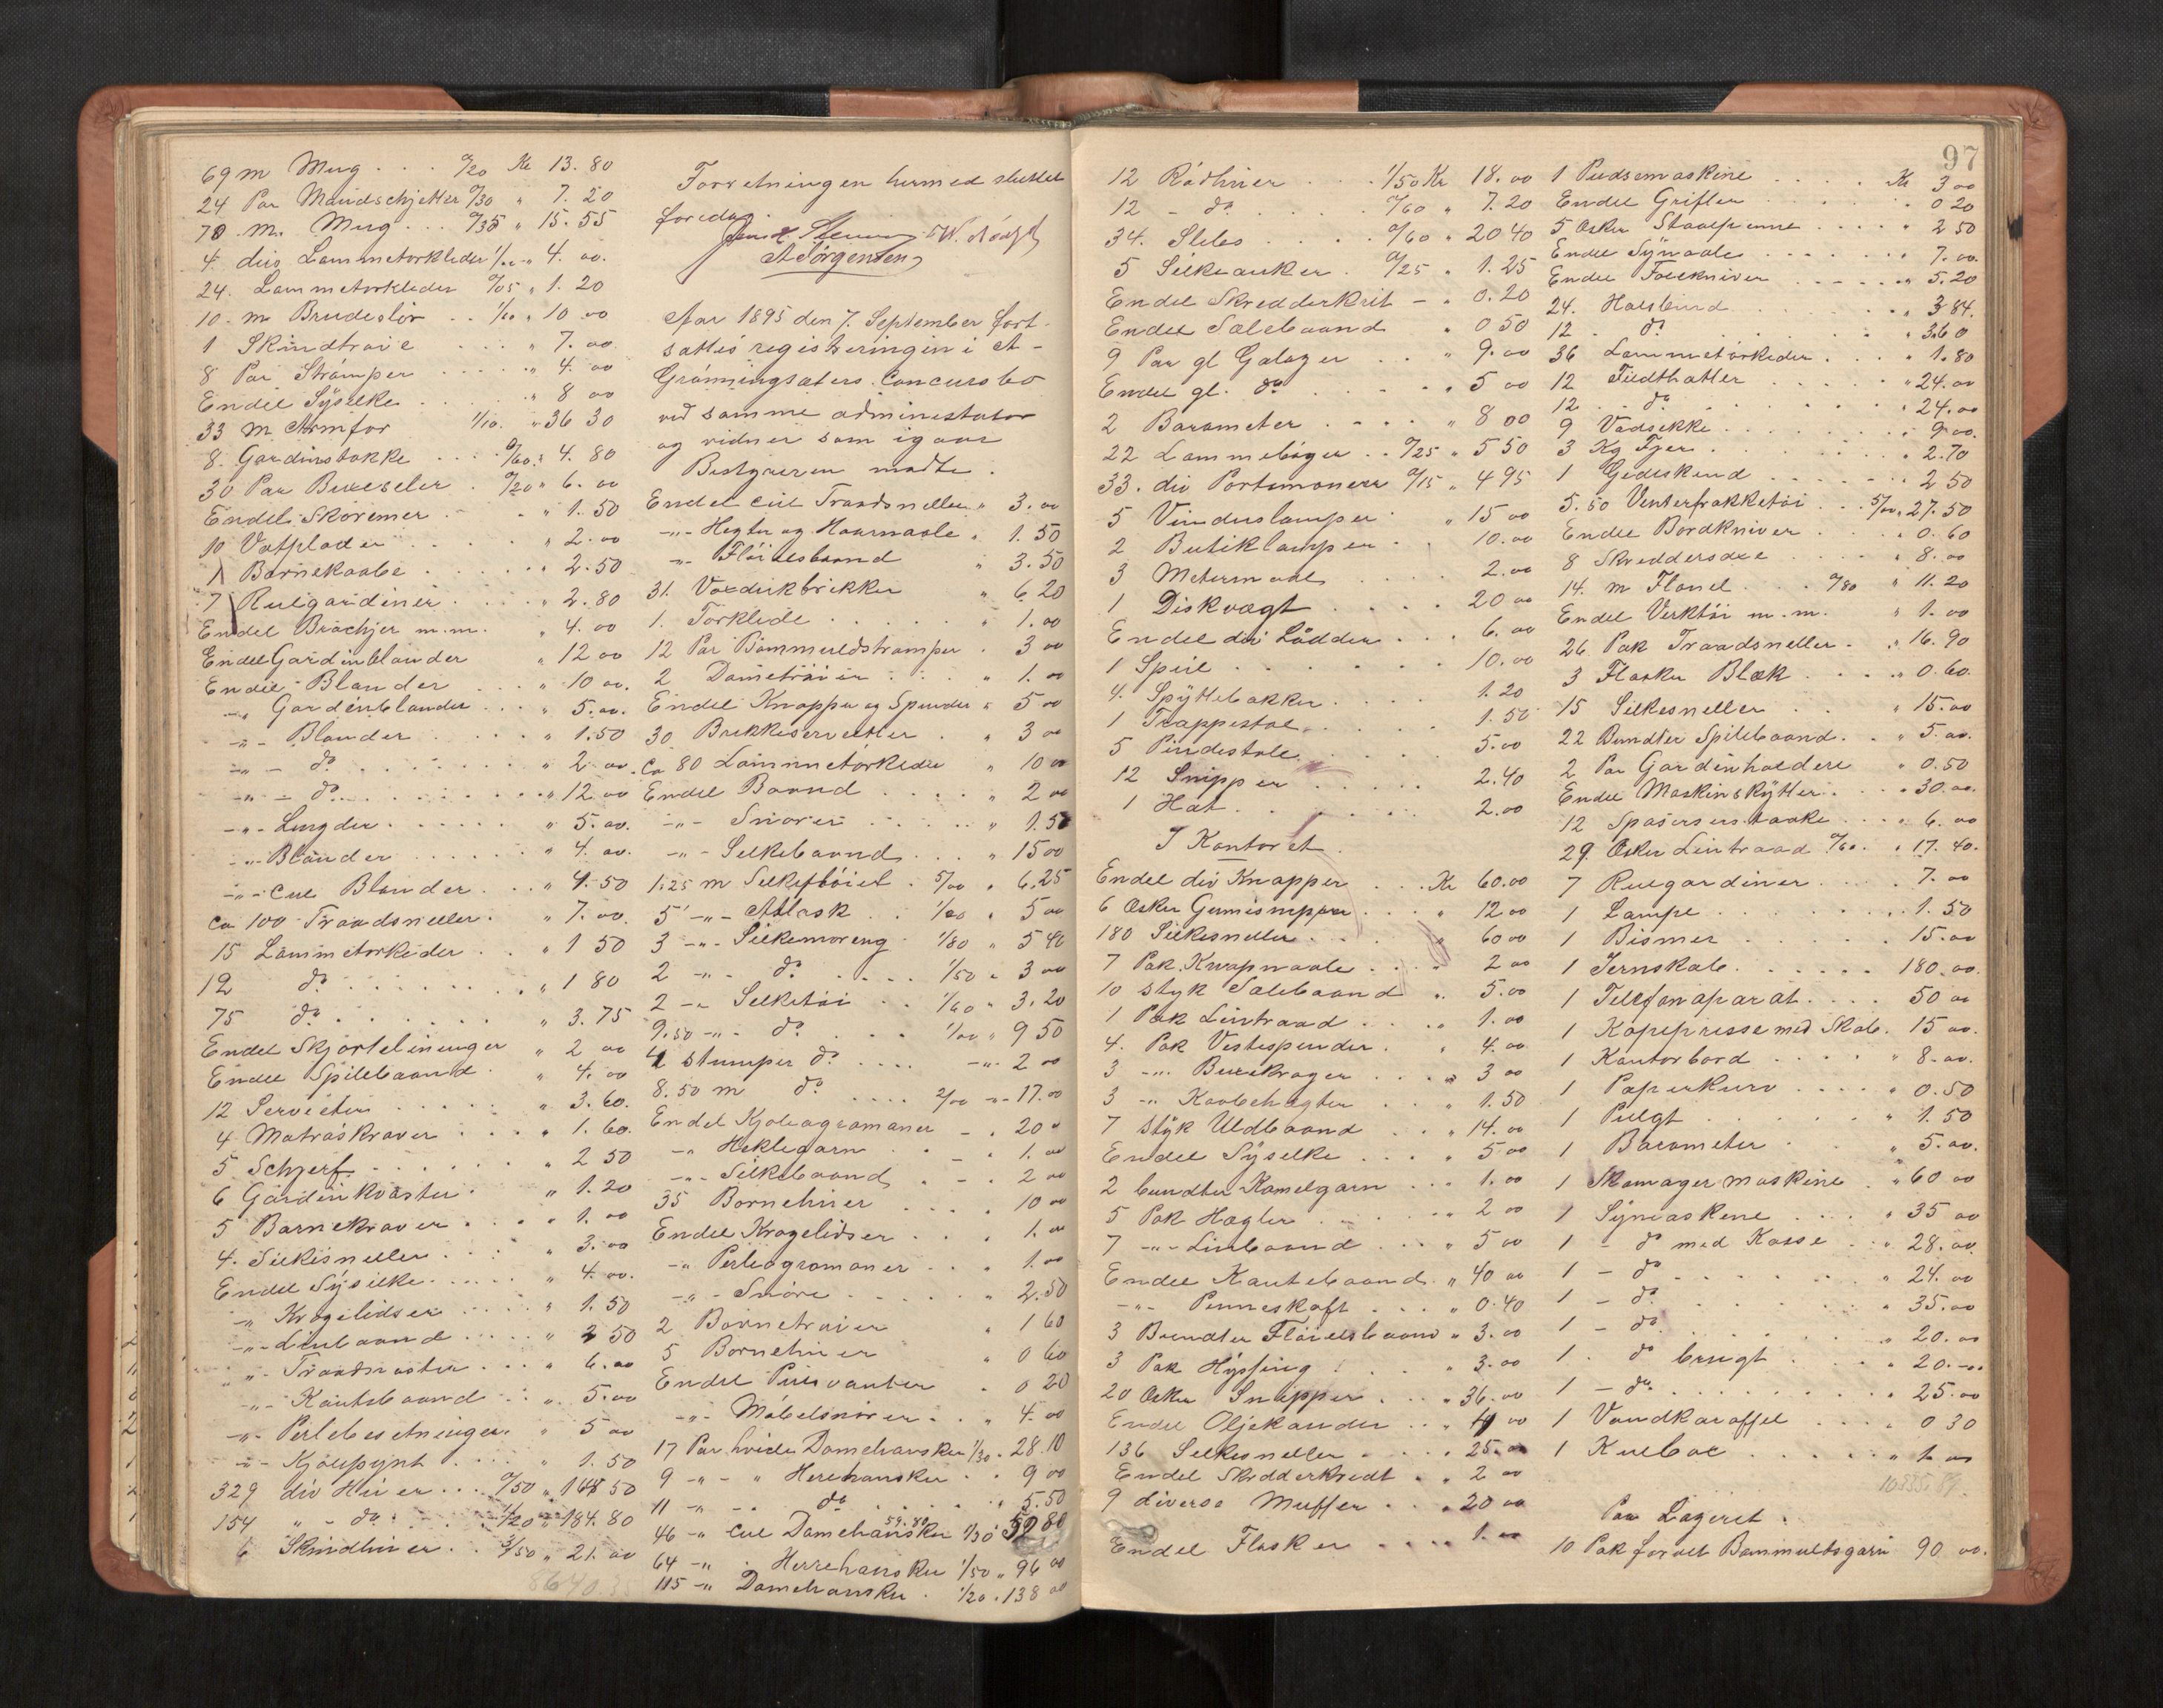 69 m Mug . . . 0/20 Kr 13. 80
24 Par Mandschjetter 0/30 " 7. 20
70 m. Mug . . . 0/35 " 15. 55
4. div Lommetørkleder 1/00 " 4. 00.
24. Lommetørkleder 0/05 " 1. 20
10. m Brudeslør . . 1/00 " 10 00
1 Skindtrøie . . . " 7. 00
8 Par Strømper . . . . " 4. 00
Endel Sÿselke . . . . " 8 00
33 m Armfor 1/10. " 36 30
8. Gardinstokke . . . 0/60 " 4. 80
30 Par Buxeseler . 0/20 " 6. 00
Endel Skoremer . . . " 1. 50
10 Vatplader . . . . " 2. 00
1 Barnekaabe . . . . " 2. 50
7 Rulgardiner . . . . " 2. 80
Endel Brochjer m.m. " 4. 00
Endel Gardinblonder " 12 00
Endel Blonder . . . " 10 00.
-"- Gardinblonder . . . " 5. 00.
-"- Blonder . . . . " 1. 50
-"- do . . . . . " 2 00.
-"- do . . . . . " 12 00
-"- Lugder . . . . " 5. 00.
-"- Blonder . . . . " 4. 00.
-"- cul Blonder . . . " 4. 50
Ca 100 Traadsneller . " 7. 00.
15 Lommetørkleder . . " 1 50
12 do . . . . . . " 1 80
75 do . . . . . . " 3. 75
Endel Skjortelininger " 2 00
Endel Spilebaand . " 4. 00
12 Servietter . . . . " 3. 60.
4 Matraskraver . . . " 1. 60.
5 Schjerf . . . . . " 2 50
6 Gardinkvaster . " 1. 20
5 Barnekraver . . . . " 1. 00
4. Silkesneller . . . " 3. 00
Endel Sÿsilke . . . . " 4. 00.
-"- Kragelidser . . . . " 1. 50
-"- Linbaand . . . . " 2 50
-"- Traadnøster . . . " 6. 00
-"- Kantebaand . . . " 5. 00
-"- Perlebesetninger. " 5 00
-"- Kjolepynt . . . . " 1. 50
329 div Huer . . . 0/50 " 164 50
154 " - do . . . 1/20 " 184. 80
6 Skindhuer . . 3/50 " 21. 00
8640.35
Forretningen hermed sluttet
foredag.
A Jørgensen
Aar 1895 den 7. September fort-
sattes registreringen i A-
Grønningsæters Concursbo
ved samme administrator
og vidner som igaar
Bestyreren mødte.
Endel cul Traadsneller " 3. 00
-"- Hegter og Haarnaale " 1. 50
-"- Fløielsbaand " 3. 50
31. Voxdukbrikker " 6. 20
1. Tørklede . . . . . " 1. 00
12 Par Bommuldstrømper . 3 00
2 Dametrøier . . . " 1. 00
Endel Knapper og Spender " 5 00
30 Brikkeservietter . " 3 00
Ca 80 Lommetørkleder " 10 00
Endel Baand . . . . " 2 00
-"- Snorer . . . . . " 1. 50
-"- Silkebaand . . . " 15 00
1.25 m Silkefløiel . 5/00 " 6. 25
5 -"- Atlask . . 1/00 " 5 00
3 -"- Silkemoreng 1/80 " 5 40
2 -"- do . . . . 1/50 " 3 00
2 -"- Silketøi . . 1/60 " 3. 20
9.50 -"- do . . . 1/00 " 9 50
4 stumper do . . . . -"- 2 00
8.50 m do . . . . 2/00 -"- 17. 00
Endel Kjoleagramaner - " 20 "
-"- Heklegarn . . - " 1. 00
-"- Silkebaand . . - " 2 00
35 Bornehuer . . . . 10 00
Endel Kragelidser . . " 1. 00
-"- Perleagramaner . . " 1. 00
-"- Snøre . . . . . " 2. 50
2 Bornetrøier " 1 60
5 Bornehuer " 0 60
Endel Pulsvanter . 0 20
-"- Møbelsnorer . . " 4. 00
17 Par hvide Damehansker 1/30 " 28. 10
9 -"- " Herrehansker . . " 9 00
11 -"- " do . . . . . " 5. 50
59.80
46 -"- cul Damehansker 1/30 59 80
64 -"- " Herrehansker 1/50 " 96 00
115 -"- Damehansker . 1/20 . 138 00
97
12 Rødhuer . . . 1/50 Kr 18. 00
12 - do . . . . 0/60 " 7. 20
34. Slebs . . . . 0/60 " 20 40
5 Silketanker . 0/25 " 1. 25
Endel Skredderkrit - " 0. 20
Endel Salebaand " 0 50
9 Par gl Galoger . . " 9. 00
Endel gl. do . . . . " 5 00
2 Barometer . . . . " 8 00
22 Lommebøger . . 0/25 " 5 50
33. div Portemoneer 0/15 " 4 95
5 Vinduslamper . " 15 00
2 Butiklamper . . 10. 00
3 Metermaal . . . . 2. 00
1 Diskvægt . . . . 20 00
Endel div Lådder . . . 6. 00
1 Speil . . . . . . . 10. 00
4. Spÿttebakker . . . 1. 20
1 Trappestol . . . . 1. 50
5 Pindestole . . . . 5. 00
12 Snipper . . . . . 2. 40
1 Hat . . . . . . . 2. 00
I Kontoret.
Endel div Knapper . . . Kr 60. 00
6 Æsker Gumisnipper . . . " 12 00
180 Silkesneller . . . " 60 00
7 Pak Knapnaale . . . " 2 00
10 Styk Salebaand " 5. 00
1 Pak Lintraad . . . " 1. 00
4. Pak Vestespender . " 4. 00
3 -"- Buxekroger . . . " 3 00
3 -"- Kaabehegter . . . " 1. 50
7 Stÿk Uldbaand . . . " 14. 00
Endel Sÿselke . . . " 5 00
2 bundter Kamelgarn . . . 1. 00
5 Pak Hægter . . . . . " 2 00
7 -"- Linbaand . . . " 5 00
Endel Kantebaand . " 40 00
-"- Penneskaft . . . " 0. 40
3 Bundter Fløielsbaand " 3. 00
3 Pak Hÿssing . . . " 3. 00
20 Æsker Snipper . . . " 36. 00
Endel Oljekander . . " 4 00
136 Silkesneller . . . " 25. 00
Endel Skredderkridt . " 2 00
9 diverse Muffer . . . " 20 00
Endel Flasker . . . . 1. 00
1 Pudsemaskine . . . . Kr 3 00
Endel Grifler . . . . . . " 0 20
5 Æsker Staalpenne . . . . . " 2 50
Endel Sÿnaale . . . . . . " 7. 00
Endel Foldekniver . . . . . " 5. 20
24. Halsbind . . . . . . " 3 84.
12 - do . . . . . . " 3. 60
36 Lommetørkleder . . . " 1. 80
12 Fildthatter . . . . . " 24. 00
12 - do . . . . . . " 24. 00
9 Vadsekke . . . . . . " 9 00.
3 Kg Fjer . . . . . . " 2. 70
1 Gedeskind . . . . . . 2 50
5.50 Venterfrakketøi . . . 5/00 " 27. 50
Endel Bordkniver . . . . " 0. 60
8 Skreddersaxe . . . . " 8. 00
14. m Flonel . . . 0/80 " 11. 20
Endel Verktøi m.m. " 1. 00
26. Pak Traadsneller . . " 16. 90
3 Flasker Blæk . . . . " 0. 60.
15 Silkesneller . . " 15. 00
22 Bundter Spilebaand . . " 5. 00.
2 Par Gardinholdere " 0. 50
Endel Maskinskÿtter . . . " 30. 00.
12 Spasersestokke . . . . " 6. 00
29. Æsker Lintraad 0/60 . " 17. 40.
7 Rulgardiner . . . . 7. 00
1 Lampe . . . . . . . 1. 50
1 Bismer . . . . . 15. 00
1 Jernskab . . . . . . 180. 00.
1 Telefonaparat . . . . 50 00
1 Kopepresse med Skab . 15 00.
1 Kontorbord . . . . " 8. 00.
1 Papirkurv . . . . . " 0. 50
1 Pulgt . . . . . . " 1. 50
1 Barometer . . " 5. 00.
1 Skomagermaskine . " 60 00
1 Sÿmaskine . . . " 35 00
1 - do med Kasse . . . 28. 00
1 - do . . . . . . " 24. 00
1 - do . . . . . . " 35. 00
1 - do . . . . . . " 20. 00
1 - do brugt . . . . " 20. -
1 - do . . . . . . . " 25. 00
1 Vandkaraffel . . . . " 0 30
1 Kulboe . . . . . . " 1 00
10335.89.
Paa Lageret.
10 Pak farvet Bommuldsgarn 90 00.